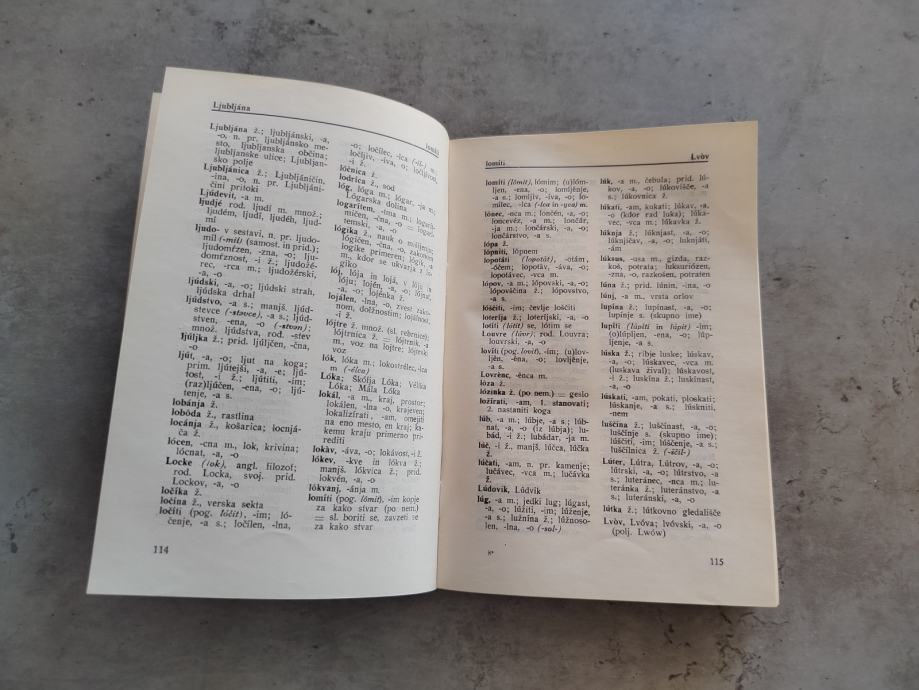 Ljubljána
lomíti
Ljubljána ž.; ljubljánski, -a,
-o, n. pr. ljubljánsko me-
sto, ljubljanska občina;
ljubljanske ulice; Ljubljan-
sko polje
Ljubljánica ž.; Ljubljáničin,
-ina, -o, n. pr. Ljubljáni-
čini pritoki
Ljúdevit, -a m.
ljudjé rod. ljudi m. množ.;
ljudém, ljudí, ljudéh, ljud-
mí
ljudo- v sestavi, n. pr. ljudo-
mil (-mił) (samost. in prid.);
ljudomŕzen, -zna, -o; lju-
domŕznost, -i ž.; ljudožé-
rec, -rca m.; ljudožêrski,
-a, -o
ljúdski, -a, -o; ljúdski strah,
ljúdska drhal
ljúdstvo, -a s.; manjš. ljúd-
stevce (-stəvce), -a s.; ljúd-
stven, -ena, -o (-stvən);
množ. ljúdstva, rod. -stev
ljúljka ž.; prid. ljúljčen, -čna,
-o
ljút, -a, -o; ljut na koga;
prim. ljútejši, -a, -e; ljú-
tost, -i ž.; ljútiti, -im;
(raz)ljúčen, -ena, -o; ljú-
tenje, -a s.
lobánja ž.
lobóda ž., rastlina
locánja ž., košarica; locnjá-
ča ž.
lócen, -cna m., lok, krivina;
lócnat, -a, -o
Locke (lok), angl. filozof;
rod. Locka, svoj. prid.
Lockov, -a, -o
ločíka ž.
ločína ž., verska sekta
ločíti (pog. lóčit), -im; ló-
čenje, -a s.; ločílen, -lna,
-o; ločílec, -lca (-íł-) m.;
ločljív, -íva, -o; ločljívost,
-i ž.
lóčnica ž.
lodrica ž., sod
lóg, lóga m.; lógar, -ja m.;
Lógarska dolina
logaritem, -tma m.; logarit-
mičen, -čna, -o = logari-
temski, -a, -o
lógika ž., nauk o mišljenju;
lógičen, -čna, -o, zakonom
logike primeren; lógik, -a
m., kdor se ukvarja z lo-
giko
lój, lója in lojá, v lóju in
lojú; lojén, -a, -o; lójnat,
-a, -o; lojénka ž.
lojálen, -lna, -o, zvest zako-
nom, dolžnostim; lojálnost,
-i ž.
lójtre ž. množ. (sl. rebrnice);
lójtrnica ž. = lójtrnik, -a
m., voz na lojtre; lójtrski
voz
lók, lóka m.; lokostrélec, -lca
m (-éłca)
Lóka; Škófja Lóka; Vélika
Lóka; Mála Lóka
lokál, -a m., kraj, prostor;
lokálen, -lna -o, krajeven;
lokalizírati, -am, omejiti
na eno mesto, en kraj; ka-
kemu kraju primerno pri-
rediti
lokàv, -áva, -o; lokávost, -i ž.
lókev, -kve in lókva ž.;
manjš. lókvica ž.; prid.
lokvén, -a, -o
lókvanj, -ánja m.
lomíti (pog. lômit), -im kopje
za kako stvar (po nem.)
= sl. boriti se, zavzeti se
za kako stvar
114
lomíti
Lvòv
lomíti (lômit), lómim; (u)lóm-
ljen, -ena, -o; lomljênje,
-a s.; lomljív, -íva, -o; lo-
mílec, -lca (-łca in -wca) m.
lónec, -nca m.; lončén, -a, -o;
loncevèz, -vca m.; lončár,
-ja m.; lončárski, -a, -o;
lončárstvo, -a s.
lópa ž.
lópniti, lópnem
lopotáti (lopotát), -otám,
-óčem; lopotàv, -áva, -o;
lopotávec, -vca m.
lópov, -a m.; lópovski, -a, -o;
lópovščina ž.; lópovstvo,
-a s.
lóščiti, -im; čevlje loščiti
loteríja ž.; loteríjski, -a, -o
lotíti (lótit) se, lótim se
Louvre (lúvr), rod. Louvra;
louvrski, -a, -o
lovíti (pog. lovít), -im; (u)lov-
ljen, -êna, -o; lovljênje,
-a s.
Lovrènc, -ênca m.
lóza ž.
lózinka ž. (po nem.) = geslo
ložírati, -am, 1. stanovati;
2. nastaniti koga
lúb, -a m.; lúbje, -a s.; lúb-
nat, -a, -o (iz lúbja); lu-
bád, -i ž.; lubádar, -ja m.
lúč, -i ž., manjš. lúčca, lúčka
ž.
lúčati, -am, n. pr. kamenje;
lučávec, -vca m.; lučávka
ž.
Lúdovik, Lúdvik
lúg, -a m.; jedki lug; lúgast,
-a, -o; lúžiti, -im; lúženje,
-a s.; lužnína ž.; lúžnoso-
len, -lna, -o (-sol-)
8*
lúk, -a m., čebula; prid. lú-
kov, -a, -o; lúkovišče, -a
s.; lúkovnica ž.
lúkati, -am, kukati; lúkav, -a,
-o (kdor rad luka); lúka-
vec, -vca m.; lúkavka ž.
lúknja ž.; lúknjast, -a, -o;
lúknjičav, -a, -o; luknjáti,
-ám
lúksus, -usa m., gizda, raz-
koš, potrata; luksuriózen,
-zna, -o, razkošen, potraten
lúna ž.; prid. lúnin, -ina, -o
lúnj, -a m., vrsta orlov
lupína ž.; lupinast, -a, -o;
lupínje s. (skupno ime)
lupíti (lúpit in lupít) -im;
(o)lúpljen, -ena, -o; lúp-
ljenje, -a s.
lúska ž.; ribje luske; lúskav,
-a, -o; lúskavec, -vca m.
(luskava žival); lúskavost,
-i ž.; luskína ž.; luskínast,
-a, -o
lúskati, -am, pokati, ploskati;
lúskanje, -a s.; lúskniti,
-nem
luščína ž.; luščínast, -a, -o;
luščínje s. (skupno ime);
lúščiti, -im; lúščenje, -a s.;
luščílnica ž. (-ščíl-)
Lúter, Lútra, Lútrov, -a, -o;
lútrski, -a, -o; lútrstvo, -a
s.; luteránec, -nca m.; lu-
teránka ž.; luteránstvo, -a
s.; luteránski, -a, -o
lútka ž.; lútkovno gledališče
Lvòv, Lvóva; lvóvski, -a, -o
(polj. Lwów)
115